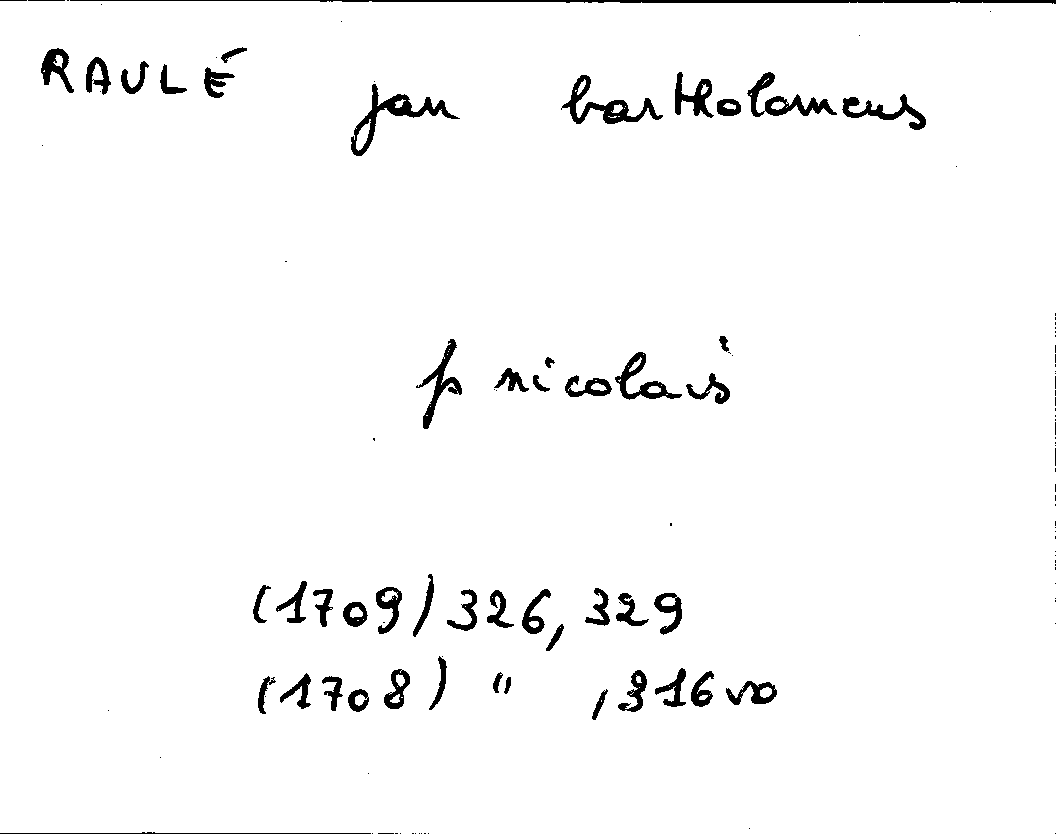 RAULÉ jan bartholomeus
p nicolais
(1709) 326, 329
(1708) " , 316 vo